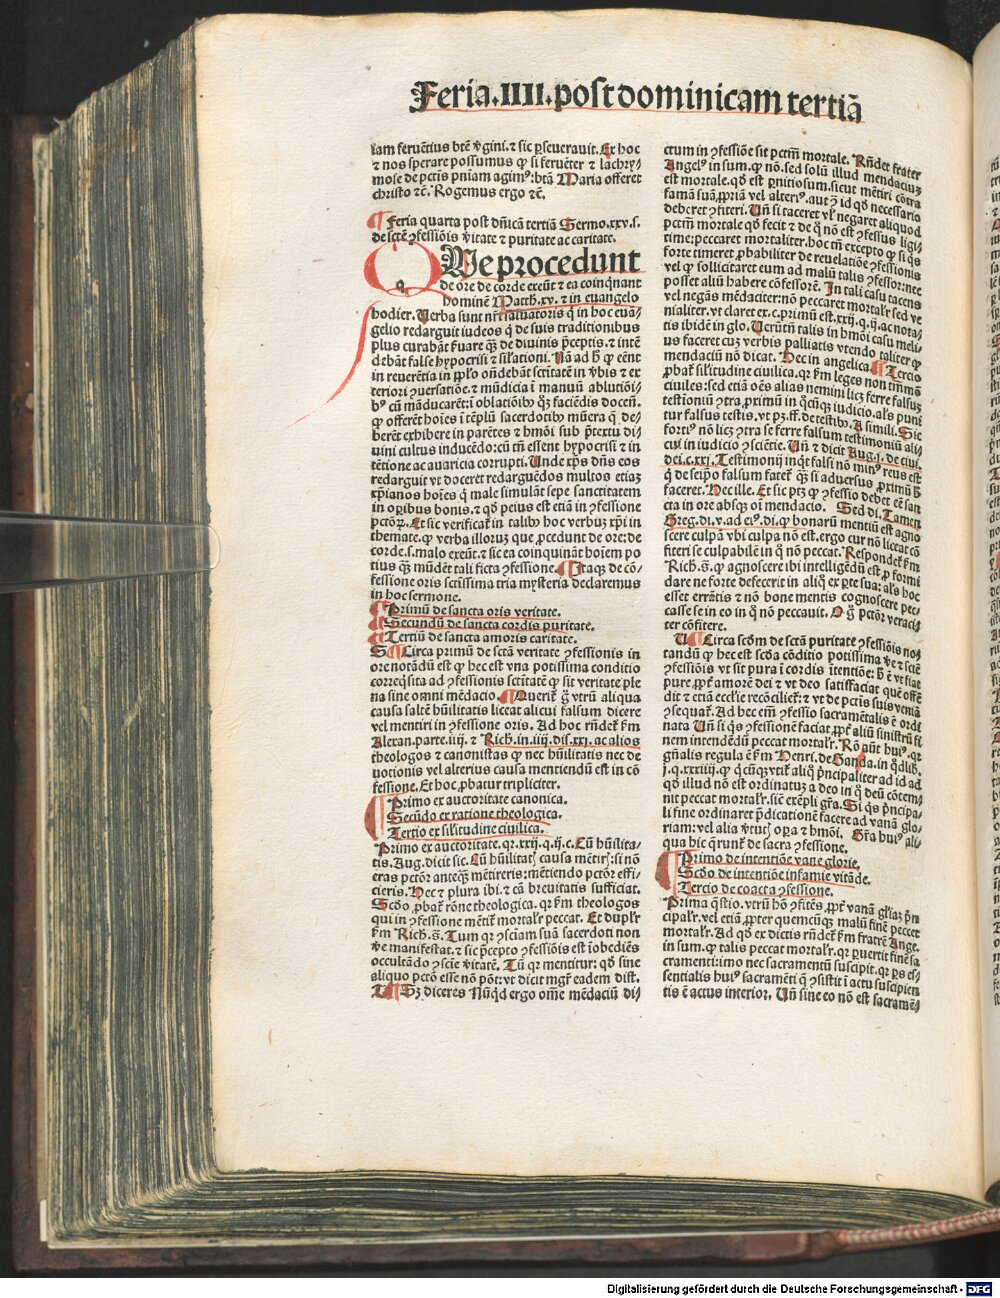 Feria.IIII.post dominicam tertiā
iam feruētius btē v̄gini.⁊ sic p̱seuerauit. Ex hoc
⁊ nos sperare possumus ꝙ si feruēter ⁊ lachry⸗
mose de pctis pniam agimꝰ:btā Maria offeret
christo ⁊c̄. Rogemus ergo ⁊c̄.
¶ Feria quarta post dn̄icā tertiā Sermo.xxv.s.
de sctē ꝯfessiōis v̄itate ⁊ puritate ac caritate.
QVe procedunt
de ore de corde exeūt ⁊ ea coinqnant
hominē Matth.xv.⁊ in euangelo
hodier. Verba sunt nr̄i saluatoris q̄ in hoc euā⸗
gelio redarguit iudeos q̄ de suis traditionibus
plus curabāt ẜuare qȝ de diuinis p̄ceptis.⁊ intē
debāt false hypocrisi ⁊ sil̄ationi. Nā ad h̄ ꝙ eēnt
in reuerētia in pp̄lo ondebāt sctitatē in v̄bis ⁊ ex
teriori ꝯuersatiōe.⁊ mūdicia ī manuū ablutiōi⸗
bꝰ cū māducarēt:ī oblatiōibꝰ qȝ faciēdis docen̄.
ꝙ offerēt hoīes ī tēplū sacerdotibꝰ mūera q̄ de⸗
berēt exhibere in parētes ⁊ hmōi sub p̄textu di⸗
uini cultus inducēdo:cū tn̄ essent hypocrisi ⁊ in
tētione ac auaricia corrupti. Unde xp̄s dn̄s eos
redarguit vt doceret redarguēdos multos etiaȝ
xp̄ianos hoīes q̄ male simulāt sepe sanctitatem
in oꝑibus bonis.⁊ qd̄ peius est etiā in ꝯfessione
pctōꝝ. Et sic verificat̄ in talibꝰ hoc verbuȝ xp̄i in
themate.ꝙ verba illoruȝ que ꝓcedunt de ore:de
corde.s.malo exeūt.⁊ sic ea coinquināt hoīem po
tius qȝ mūdēt tali ficta ꝯfessione. ¶ Itaqȝ de cō⸗
fessione oris sctissima tria mysteria declaremus
in hoc sermone.
¶ Primū de sancta oris veritate.
¶ Secundū de sancta cordis puritate.
¶ Tertiū de sancta amoris caritate.
S ¶ Circa primū de sctā veritate ꝯfessionis in
ore notādū est ꝙ hec est vna potissima conditio
ad ꝯfessionis sctitatē ꝙ sit veritate ple
na sine omni mēdacio. ¶ Querit̄ g̊ vtrū aliqua
causa saltē hūilitatis liceat alicui falsum dicere
vel mentiri in ꝯfessione oris. Ad hoc rn̄det ẜm
Alexan.parte.iiij.⁊ Rich.in.iiij.dis.xxj.ac alios
theologos ⁊ canonistas ꝙ nec hūilitatis nec de
uotionis vel alterius causa mentiendū est in cō
fessione. Et hoc ꝓbatur tripliciter.
¶ Primo ex auctoritate canonica.
Secūdo ex ratione theologica.
Tertio ex sil̄itudine ciuilica.
Primo ex auctoritate.qr.xxij.q.ij.c.Cū hūilita⸗
tis.Aug.dicit sic. Cū hūilitat causa mētir:si nō
eras pctōr anteqȝ mētireris:mētiendo pctōr effi⸗
cieris. Hec ⁊ plura ibi.⁊ cā breuitatis sufficiat.
Scd̄o ꝓbat̄ rōne theologica.qr ẜm theologos
qui in ꝯfessione mētit̄ mortal̄r peccat. Et dupl̄r
ẜm Rich.s̄. Tum qr ꝯsciam suā sacerdoti non
ve manifestat.⁊ sic p̄cepto ꝯfessiōis est īobediēs
occultādo ꝯscīe v̄itatē. Tū qr mentitur:qd̄ sine
aliquo pctō esse nō pōt:vt dicit mgr̄ eadem dist.
T ¶ Sȝ diceres Nūqd ergo om̄e mēdaciū di⸗
ctum in ꝯfessiōe sit pctm̄ mortale. Rn̄det frater
Angelꝰ in sum.ꝙ nō.sed solū illud mendaciuȝ
est mortale.qd̄ est ꝑnitiosum.sicut mētiri cōtra
famā suā,ꝓpriā vel alteriꝰ.aut ꝯ id qd̄ necessario
deberet ꝯfiteri. Un̄ si taceret vl̓ negaret aliquod
pctm̄ mortale qd̄ fecit ⁊ de q̄ nō est ꝯfessus legi⸗
time:peccaret mortaliter.hoc tn̄ excepto ꝙ si qs
forte timeret ꝓbabiliter de reuelatiōe ꝯfessionis
vel ꝙ sollicitaret eum ad malū talis ꝯfessor:nec
posset aliū habere cōfessorē. In tali casu tacens
vel negās mēdaciter:nō peccaret mortal̄r sed ve
nialiter.vt claret ex.c.primū est.xxij.q.ij.ac nota⸗
tis ibidē in glo. Uerūtn̄ talis in hmōi casu meli⸗
us faceret cuȝ verbis palliatis vtendo taliter ꝙ
mendaciū nō dicat. Hec in angelica ¶ Tercio
ꝓbat̄ sil̄itudine ciuilica.qr ẜm leges non tm̄mō
ciuiles:sed etiā oēs alias nemini licȝ ferre falsuȝ
testioniū ꝯtra,primū in qcūqȝ iudicio.al̄s puni
tur falsus testis.vt pȝ.ff.de testibꝰ. A simili. Sic
fortiꝰ nō licȝ ꝯtra se ferre falsum testimoniū ali⸗
cui in iudicio ꝯscīetie. Un̄ ⁊ dicit Aug.j.de ciui.
dei.c.xxj. Testimonij inqt falsi nō minꝰ reus est
q̄ de seip̄o falsum fatet̄ qȝ si aduersus ꝓximū h̄
faceret. Hec ille. Et sic ptȝ ꝙ ꝯfessio debet eē san
cta in ore absqȝ oī mendacio. Sed di. Tamen
Greg.di.v.ad eiꝰ.di.ꝙ bonarū mentiū est agno
scere culpam vbi culpa nō est.ergo cur nō liceat cō
fiteri se culpabilē in q̄ nō peccat. Respondet̄ ẜm
Rich.s̄.ꝙ agnoscere ibi intelligēdū est ꝓ formi
dare ne forte defecerit in aliq ex pte sua:al̄s hoc
esset errātis ⁊ nō bone mentis cognoscere pec⸗
casse se in eo in q̄ nō peccauit. O g̊ pctōr veraci⸗
ter cōfitere.
V ¶ Circa scd̄m de sctā puritate ꝯfessiōis no⸗
tandū ꝙ hec est scd̄a cōditio potissima ve ⁊ sctē
ꝯfessiōis vt sit pura ī cordis ītentiōe: h̄ ē vt fiat
pure ꝓpt̄ amorē dei ⁊ vt deo satisfaciat quē offē
dit ⁊ etiā eccl̄ie recōciliet̄:⁊ vt de pctis suis veniā
ꝯsequat̄. Ad hec em̄ ꝯfessio sacramētalis ē ordi
nata Un̄ si qs ꝯfessionē faciat ꝓpt̄ aliū sinistrū fi
nem intendēdū peccat mortal̄r. Rō aūt huiꝰ.qr
gn̄alis regula ē ẜm Henri.de Ganda.in q̄dlib.
j.q.xxxiiij.ꝙ q̄cūqȝ vtit̄ aliq̄ p̄ncipaliter ad id ad
qd̄ illud nō est ordinatuȝ a deo in q̄ deū cōtem⸗
nit peccat mortal̄r.sic exēpli gr̄a. Si qs p̄ncipa⸗
li fine ordinaret p̄dicationē facere ad vanā glo⸗
riam:vel alia v̄tutȝ oꝑa ⁊ hmōi. Gr̄a huiꝰ ali⸗
qua hic q̄runt̄ de sacra ꝯfessione.
¶ Primo de intentiōe vane glorie.
Scd̄o de intentiōe infamie vitāde.
Tercio de coacta ꝯfessione.
Prima q̄stio.vtrū hō ꝯfitēs ꝓpt̄ vanā gl̄iaȝ p̄n
cipal̄r.vel etiā ꝓpter quemcūqȝ malū finē peccet
mortal̄r. Ad qd̄ ex dictis rn̄det ẜm fratrē Ange.
in sum.ꝙ talis peccat mortal̄r.qr ꝑuertit finē sa
cramenti:imo nec sacramentū suscipit.qr ps es⸗
sentialis huiꝰ sacramēti q̄ ꝯsistit ī actu suscipien
tis ē actus interior. Un̄ sine eo nō est sacramē⸗
Digitalisierung gefördert durch die Deutsche Forschungsgemeinschaft - DFG